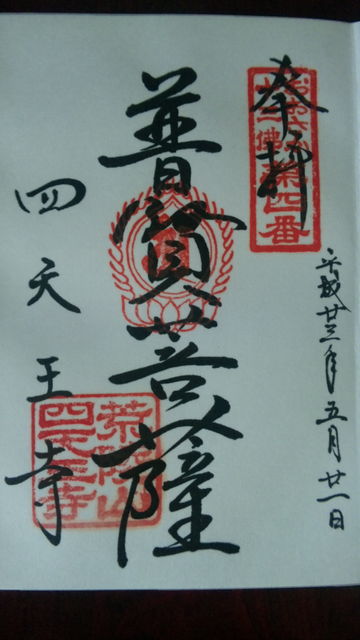 奉拝
おおさか
十三佛
第四番
平成廿三年五月廿一日
普賢菩薩
四天王寺
荒陵山
四天王寺